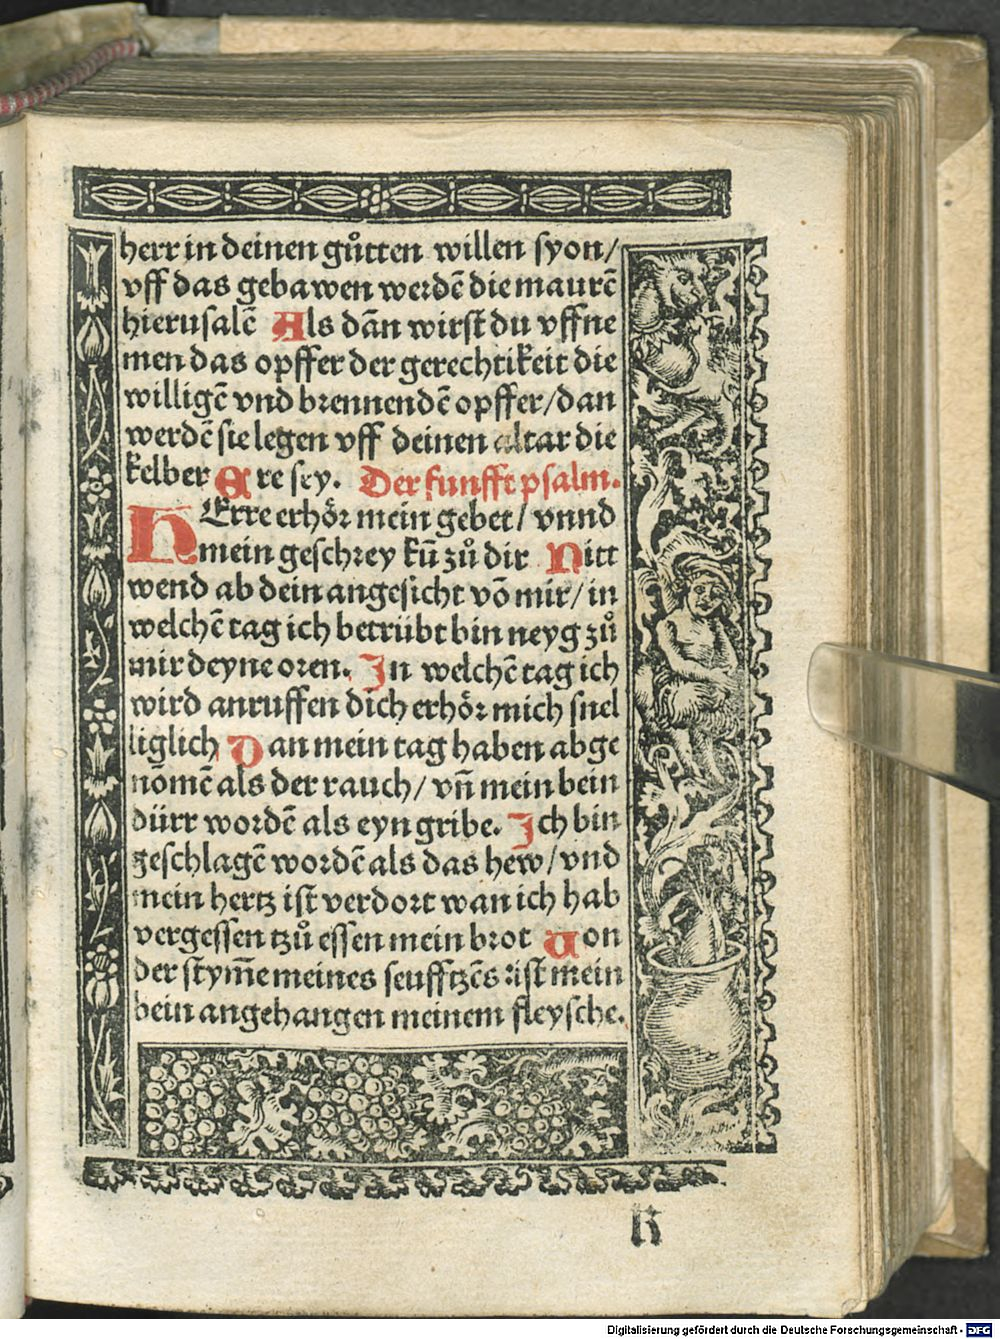 herr in deinen gůtten willen syon/
vff das gebawen werdē die maurē
hierusalē Als dān wirst du vffne
men das opffer der gerechtikeit die
willigē vnd brennendē opffer/dan
werdē sie legen vff deinen altar die
kelber Ere sey. Der funfft psalm.
HErre erhör mein gebet/ vnnd
mein geschrey kū zů dir Nitt
wend ab dein angesicht vō mir/ in
welchē tag ich betrübt bin neyg zů
mir deyne oren. In welchē tag ich
wird anruffen dich erhör mich snel
liglich Dan mein tag haben abge
nōmē als der rauch/ vn̄ mein bein
dürr wordē als eyn gribe. Ich bin
geschlagē wordē als das hew/ vnd
mein hertz ist verdort wan ich hab
vergessen tzů essen mein brot Von
der stym̄e meines seufftzēs ist mein
bein angehangen meinem fleysche.
K
Digitalisierung gefördert durch die Deutsche Forschungsgemeinschaft - DFG